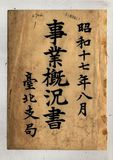 昭和十七年八月
事業概況書
臺北支局